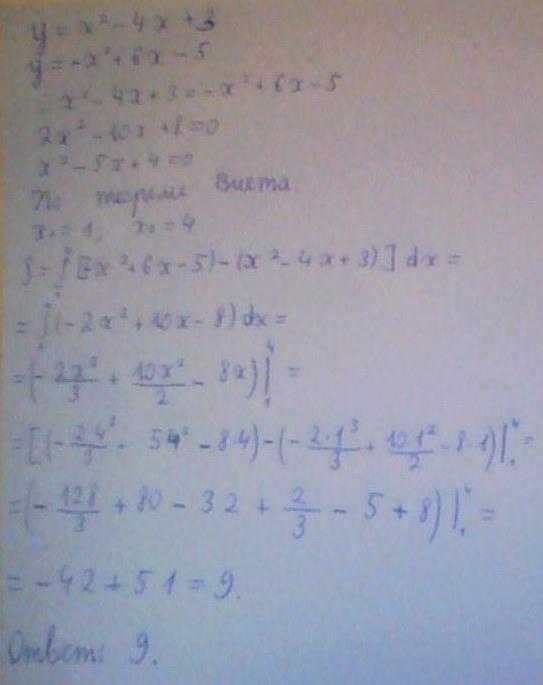 y = x² - 4x + 3
y = -x² + 6x - 5
x² - 4x + 3 = -x² + 6x - 5
2x² - 10x + 8 = 0
x² - 5x + 4 = 0
По теореме Виета
x₁ = 1; x₂ = 4
S = ∫₁⁴ [(-x² + 6x - 5) - (x² - 4x + 3)] dx =
= ∫₁⁴ (-2x² + 10x - 8) dx =
= (-2x³/3 + 10x²/2 - 8x)|₁⁴ =
= [(-2·4³/3 + 5·4² - 8·4) - (-2·1³/3 + 10·1²/2 - 8·1)|₁⁴ =
= (-128/3 + 80 - 32 + 2/3 - 5 + 8)|₁⁴ =
= -42 + 51 = 9.
Ответ: 9.